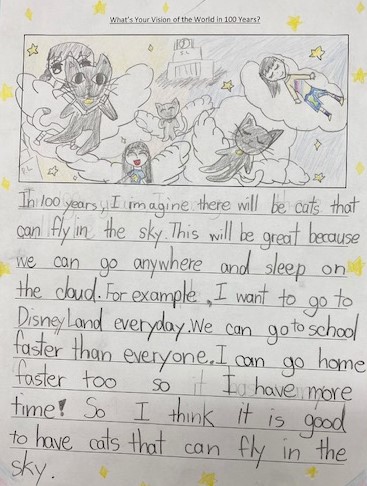 What's Your Vision of the World in 100 Years?
In 100 years, I imagine there will be cats that
can fly in the sky. This will be great because
we can go anywhere and sleep on
the cloud. For example, I want to go to
DisneyLand everyday. We can go to school
faster than everyone. I can go home
faster too so I have more
time! So I think it is good
to have cats that can fly in the
sky.